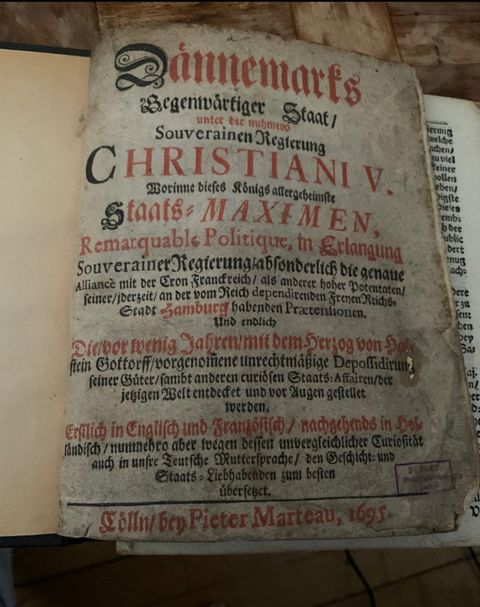 Dännemarks
Gegenwärtiger Staat/
unter der nuhmero
Souverainen Regierung
CHRISTIANI V.
Worinne dieses Königs allergeheimste
Staats-MAXIMEN,
Remarquable Politique, in Erlangung
Souverainer Regierung/absonderlich die genaue
Alliance mit der Cron Franckreich/ als anderer hoher Potentaten/
seiner/jderzeit/ an der vom Reich dependirenden Freyen Reichs-
Stadt Hamburg habenden Prætensionen.
Und endlich
Die/vor wenig Jahren/mit dem Herzog von Hol-
stein Gottorff/vorgenom̃ene unrechtmäßige Depossidirung
seiner Güter/sambt anderen curiösen Staats-Affairen/der
jetzigen Welt entdecket und vor Augen gestellet
worden.
Erstlich in Englisch und Französisch/ nachgehends in Hol-
ländisch/ nunmehro aber wegen dessen unvergleichlicher Curiosität
auch in unsre Teutsche Muttersprache/ den Geschicht- und
Staats-Liebhabenden zum besten
übersetzet.
Cölln/ bey Pieter Marteau, 1695.